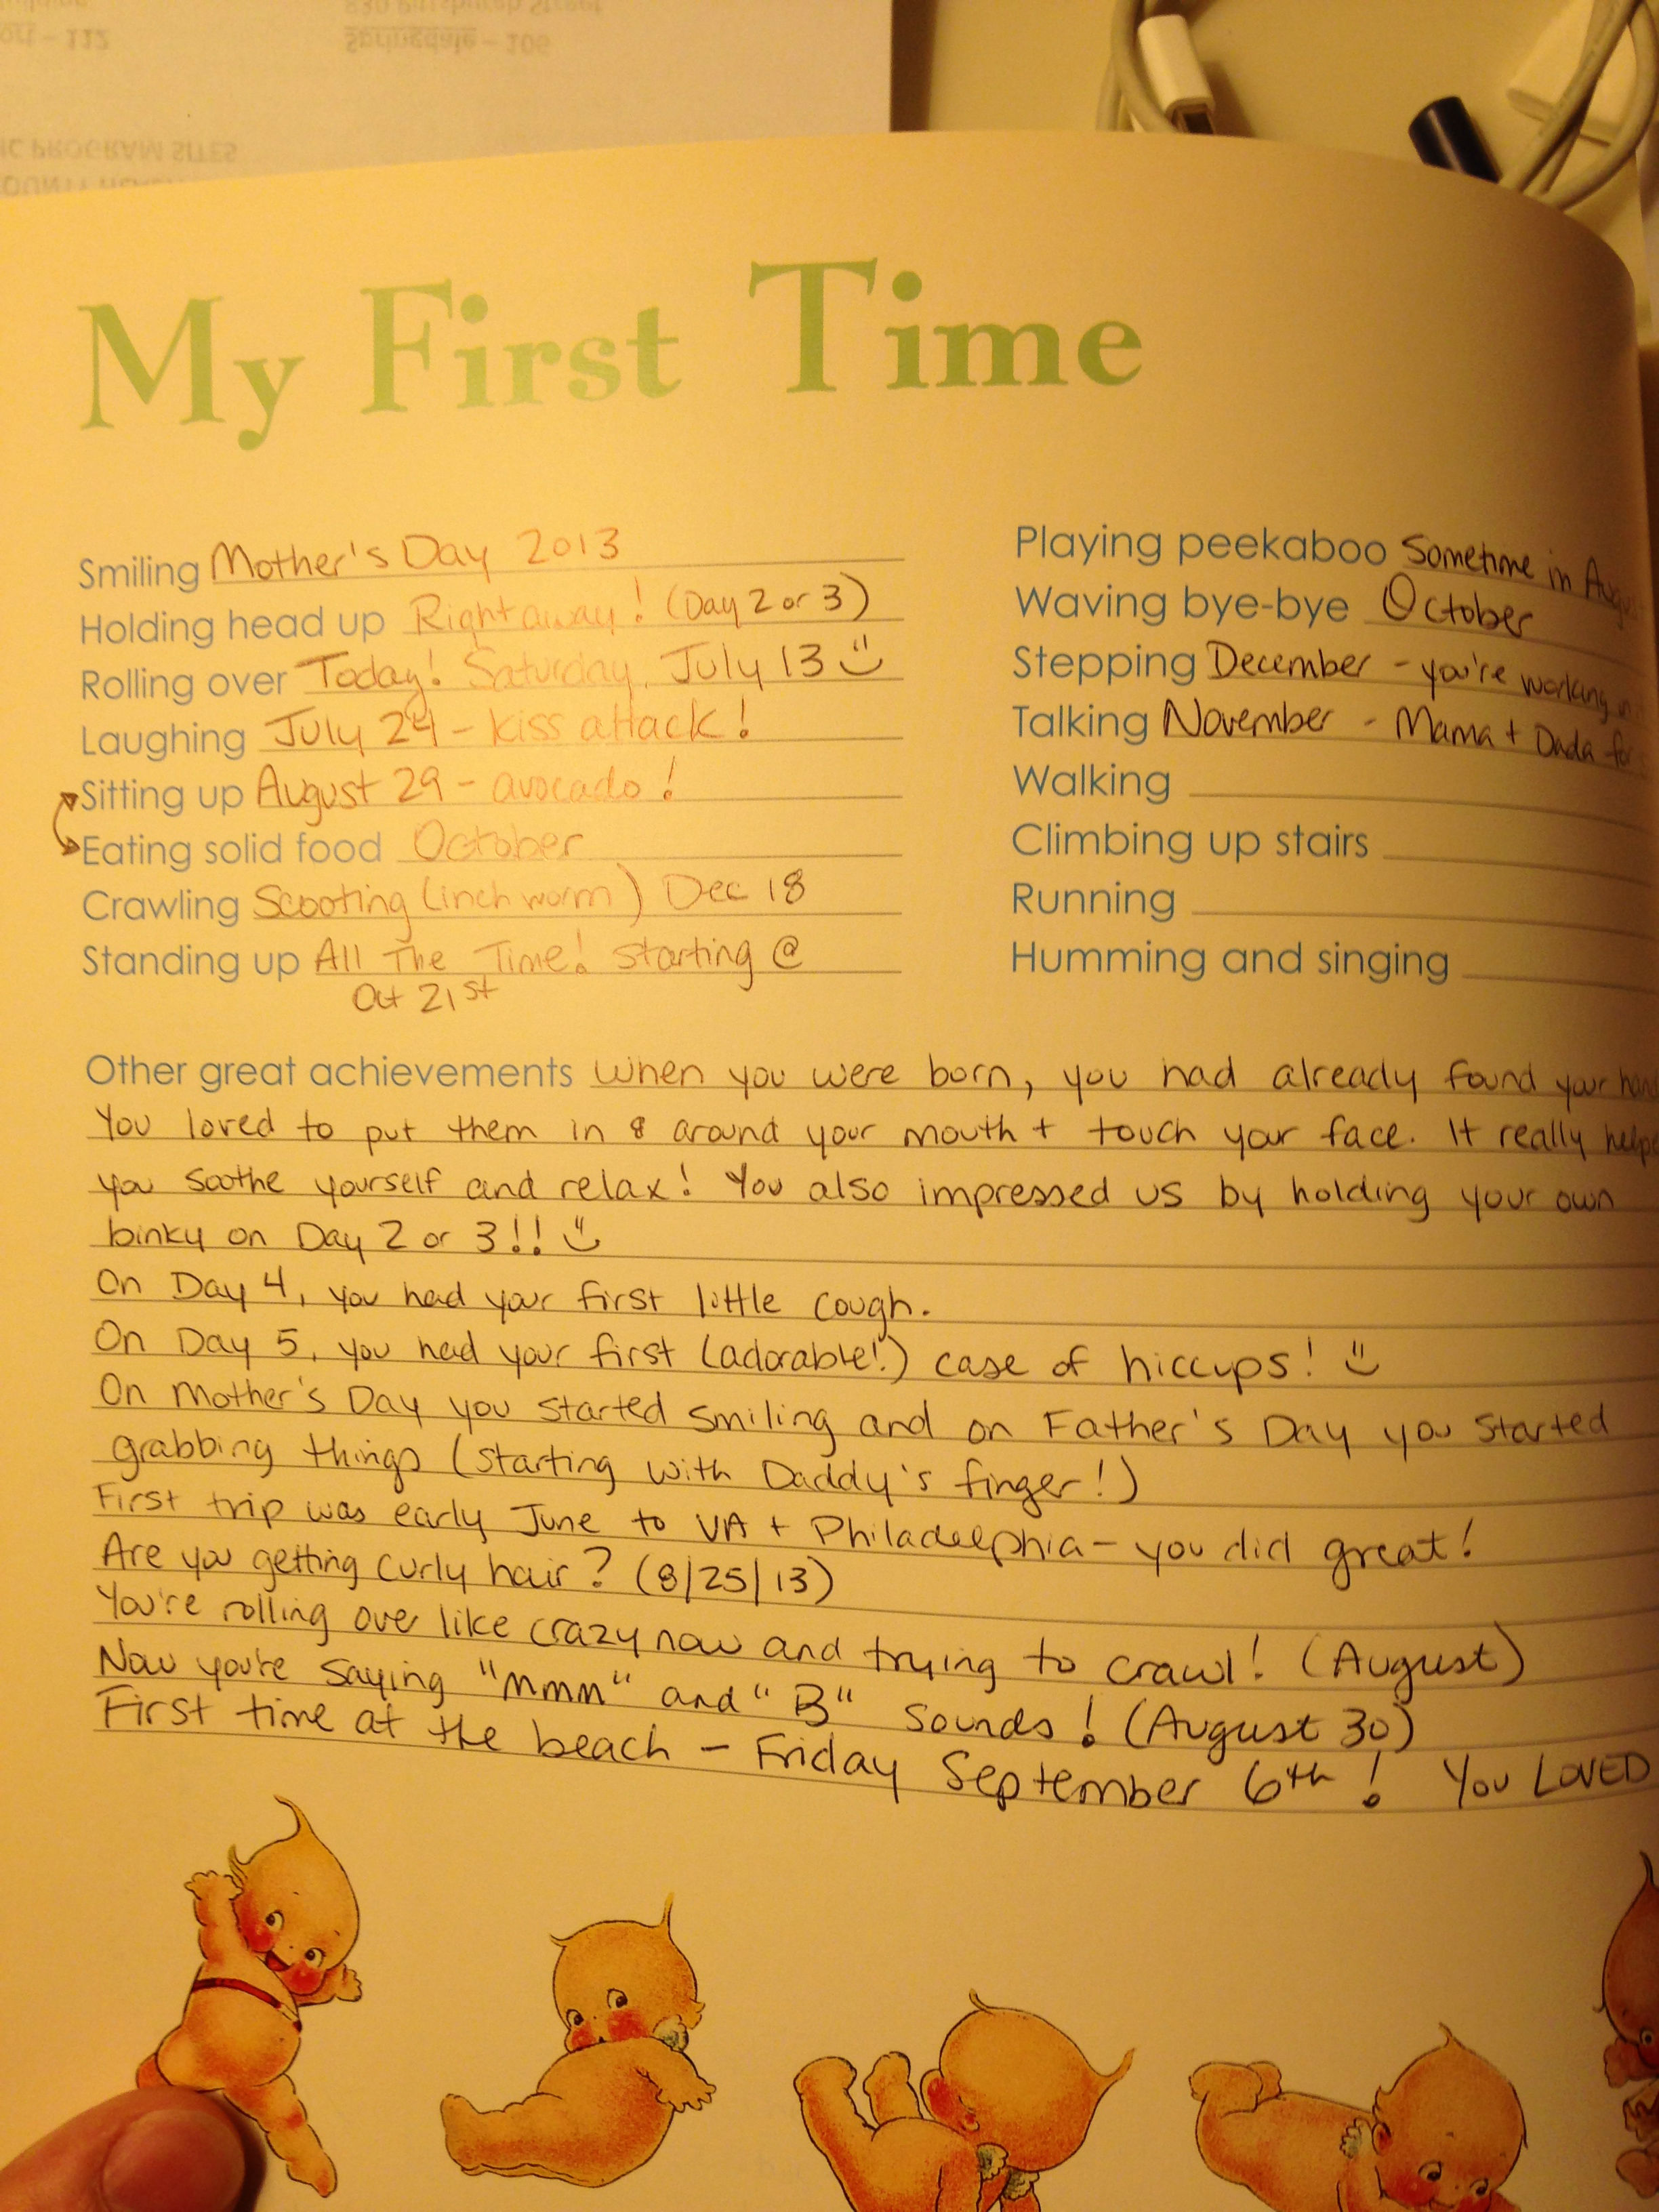 830 Pittsburgh Street
112
Springdale - 106
PROGRAM SITES
My First Time
Smiling Mother's Day 2013
Holding head up Right away! (Day 2 or 3)
Rolling over Today! Saturday, July 13
Laughing July 24 - kiss attack!
Sitting up August 29 - avocado!
Eating solid food October
Crawling Scooting (inch worm) Dec 18
Standing up All The Time! starting @
Oct 21st
Playing peekaboo Sometime in August
Waving bye-bye October
Stepping December - you're working
Talking November - Mama + Dada
Walking
Climbing up stairs
Running
Humming and singing
Other great achievements When you were born, you had already found your
You loved to put them in & around your mouth + touch your face. It really
you soothe yourself and relax! You also impressed us by holding your own
binky on Day 2 or 3!!
On Day 4, you had your first little cough.
On Day 5, you had your first (adorable!) case of hiccups!
On Mother's Day you started smiling and on Father's Day you started
grabbing things (starting with Daddy's finger!)
First trip was early June to VA + Philadelphia - you did great!
Are you getting curly hair? (8/25/13)
You're rolling over like crazy now and trying to crawl! (August)
Now you're saying "Mmm" and "B" sounds! (August 30)
First time at the beach - Friday September 6th! You LOVED